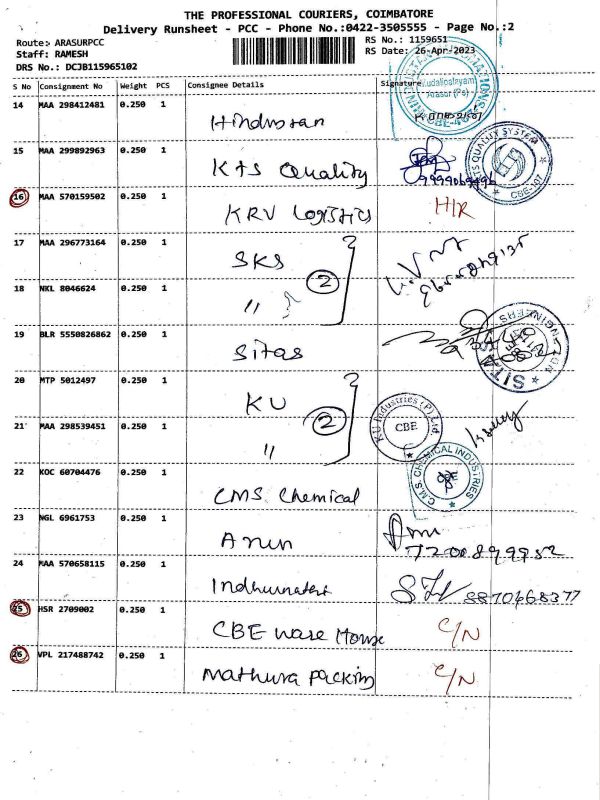 THE PROFESSIONAL COURIERS, COIMBATORE
Delivery Runsheet - PCC - Phone No.:0422-3505555 - Page No.:2
Route:- ARASURPCC
RS No.: 1159651
Staff: RAMESH
RS Date: 26-Apr-2023
DRS No.: DCJB115965102
S No Consignment No Weight PCS Consignee Details Signature
14 MAA 298412481 0.250 1 Hindustan
Mudalipalayam
Arasur (Po)
15 MAA 299892963 0.250 1 KTS Quality
TS QUALITY SYSTEM
CBE-107
16 MAA 570159502 0.250 1 KRV Logistics H/R
17 MAA 296773164 0.250 1 SKS 2
18 NKL 8046624 0.250 1 "
19 BLR 5550826862 0.250 1 Sitas
20 MTP 5012497 0.250 1 KU 2
KU Industries (P) Ltd
CBE
21 MAA 298539451 0.250 1 "
22 KOC 60704476 0.250 1 CMS Chemical
C.M.S. CHEMICAL INDUSTRIES
CBE
23 NGL 6961753 0.250 1 Arun
7200899952
24 MAA 570658115 0.250 1
8870468377
25 HSR 2709002 0.250 1 CBE Ware House C/N
26 VPL 217488742 0.250 1 Mathura Packing C/N